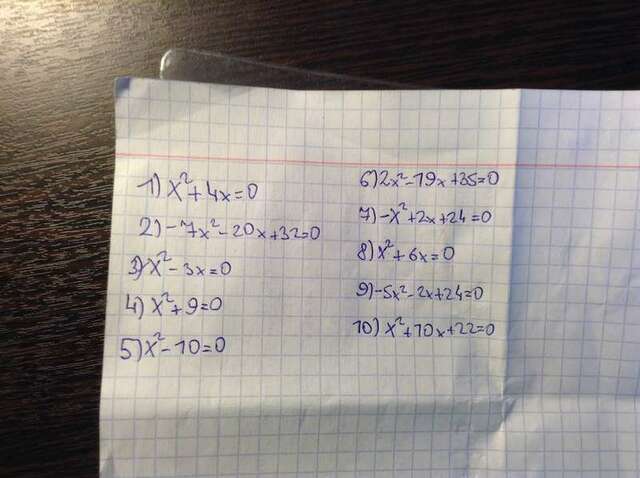 1) x²+4x=0
2) -7x²-20x+32=0
3) x²-3x=0
4) x²+9=0
5) x²-10=0
6) 2x²-19x+35=0
7) -x²+2x+24=0
8) x²+6x=0
9) -5x²-2x+24=0
10) x²+10x+22=0